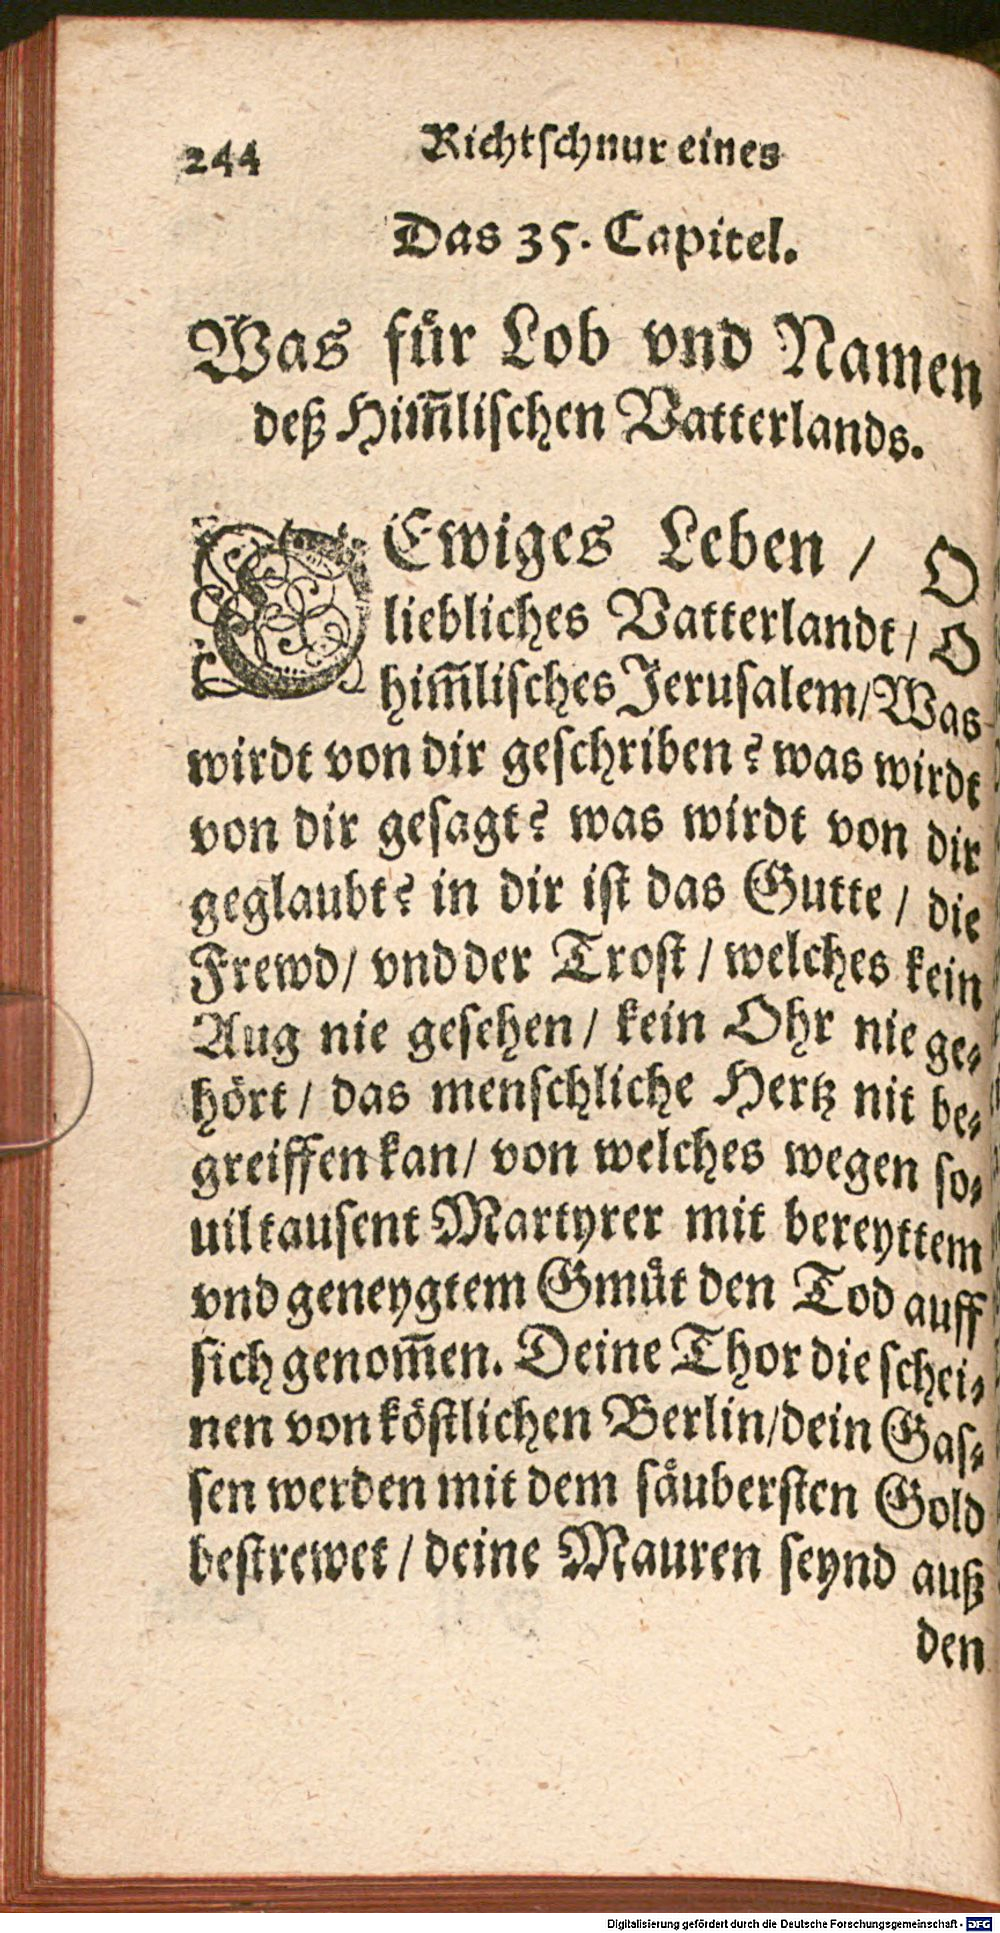 244 Richtschnur eines
Das 35. Capitel.
Was fuͤr Lob vnd Namen
deß Him̃lischen Vatterlands.
O Ewiges Leben / O
liebliches Vatterlandt / O
him̃lisches Jerusalem / Was
wirdt von dir geschriben? was wirdt
von dir gesagt? was wirdt von dir
geglaubt? in dir ist das Gutte / die
Frewd / vnd der Trost / welches kein
Aug nie gesehen / kein Ohr nie ge-
hört / das menschliche Hertz nit be-
greiffen kan / von welches wegen so-
uil tausent Martyrer mit bereyttem
vnd geneygtem Gmuͤt den Tod auff
sich genom̃en. Deine Thor die schei-
nen von köstlichen Berlin / dein Gas-
sen werden mit dem saͤubersten Gold
bestrewet / deine Mauren seynd auß
den
Digitalisierung gefördert durch die Deutsche Forschungsgemeinschaft - DFG